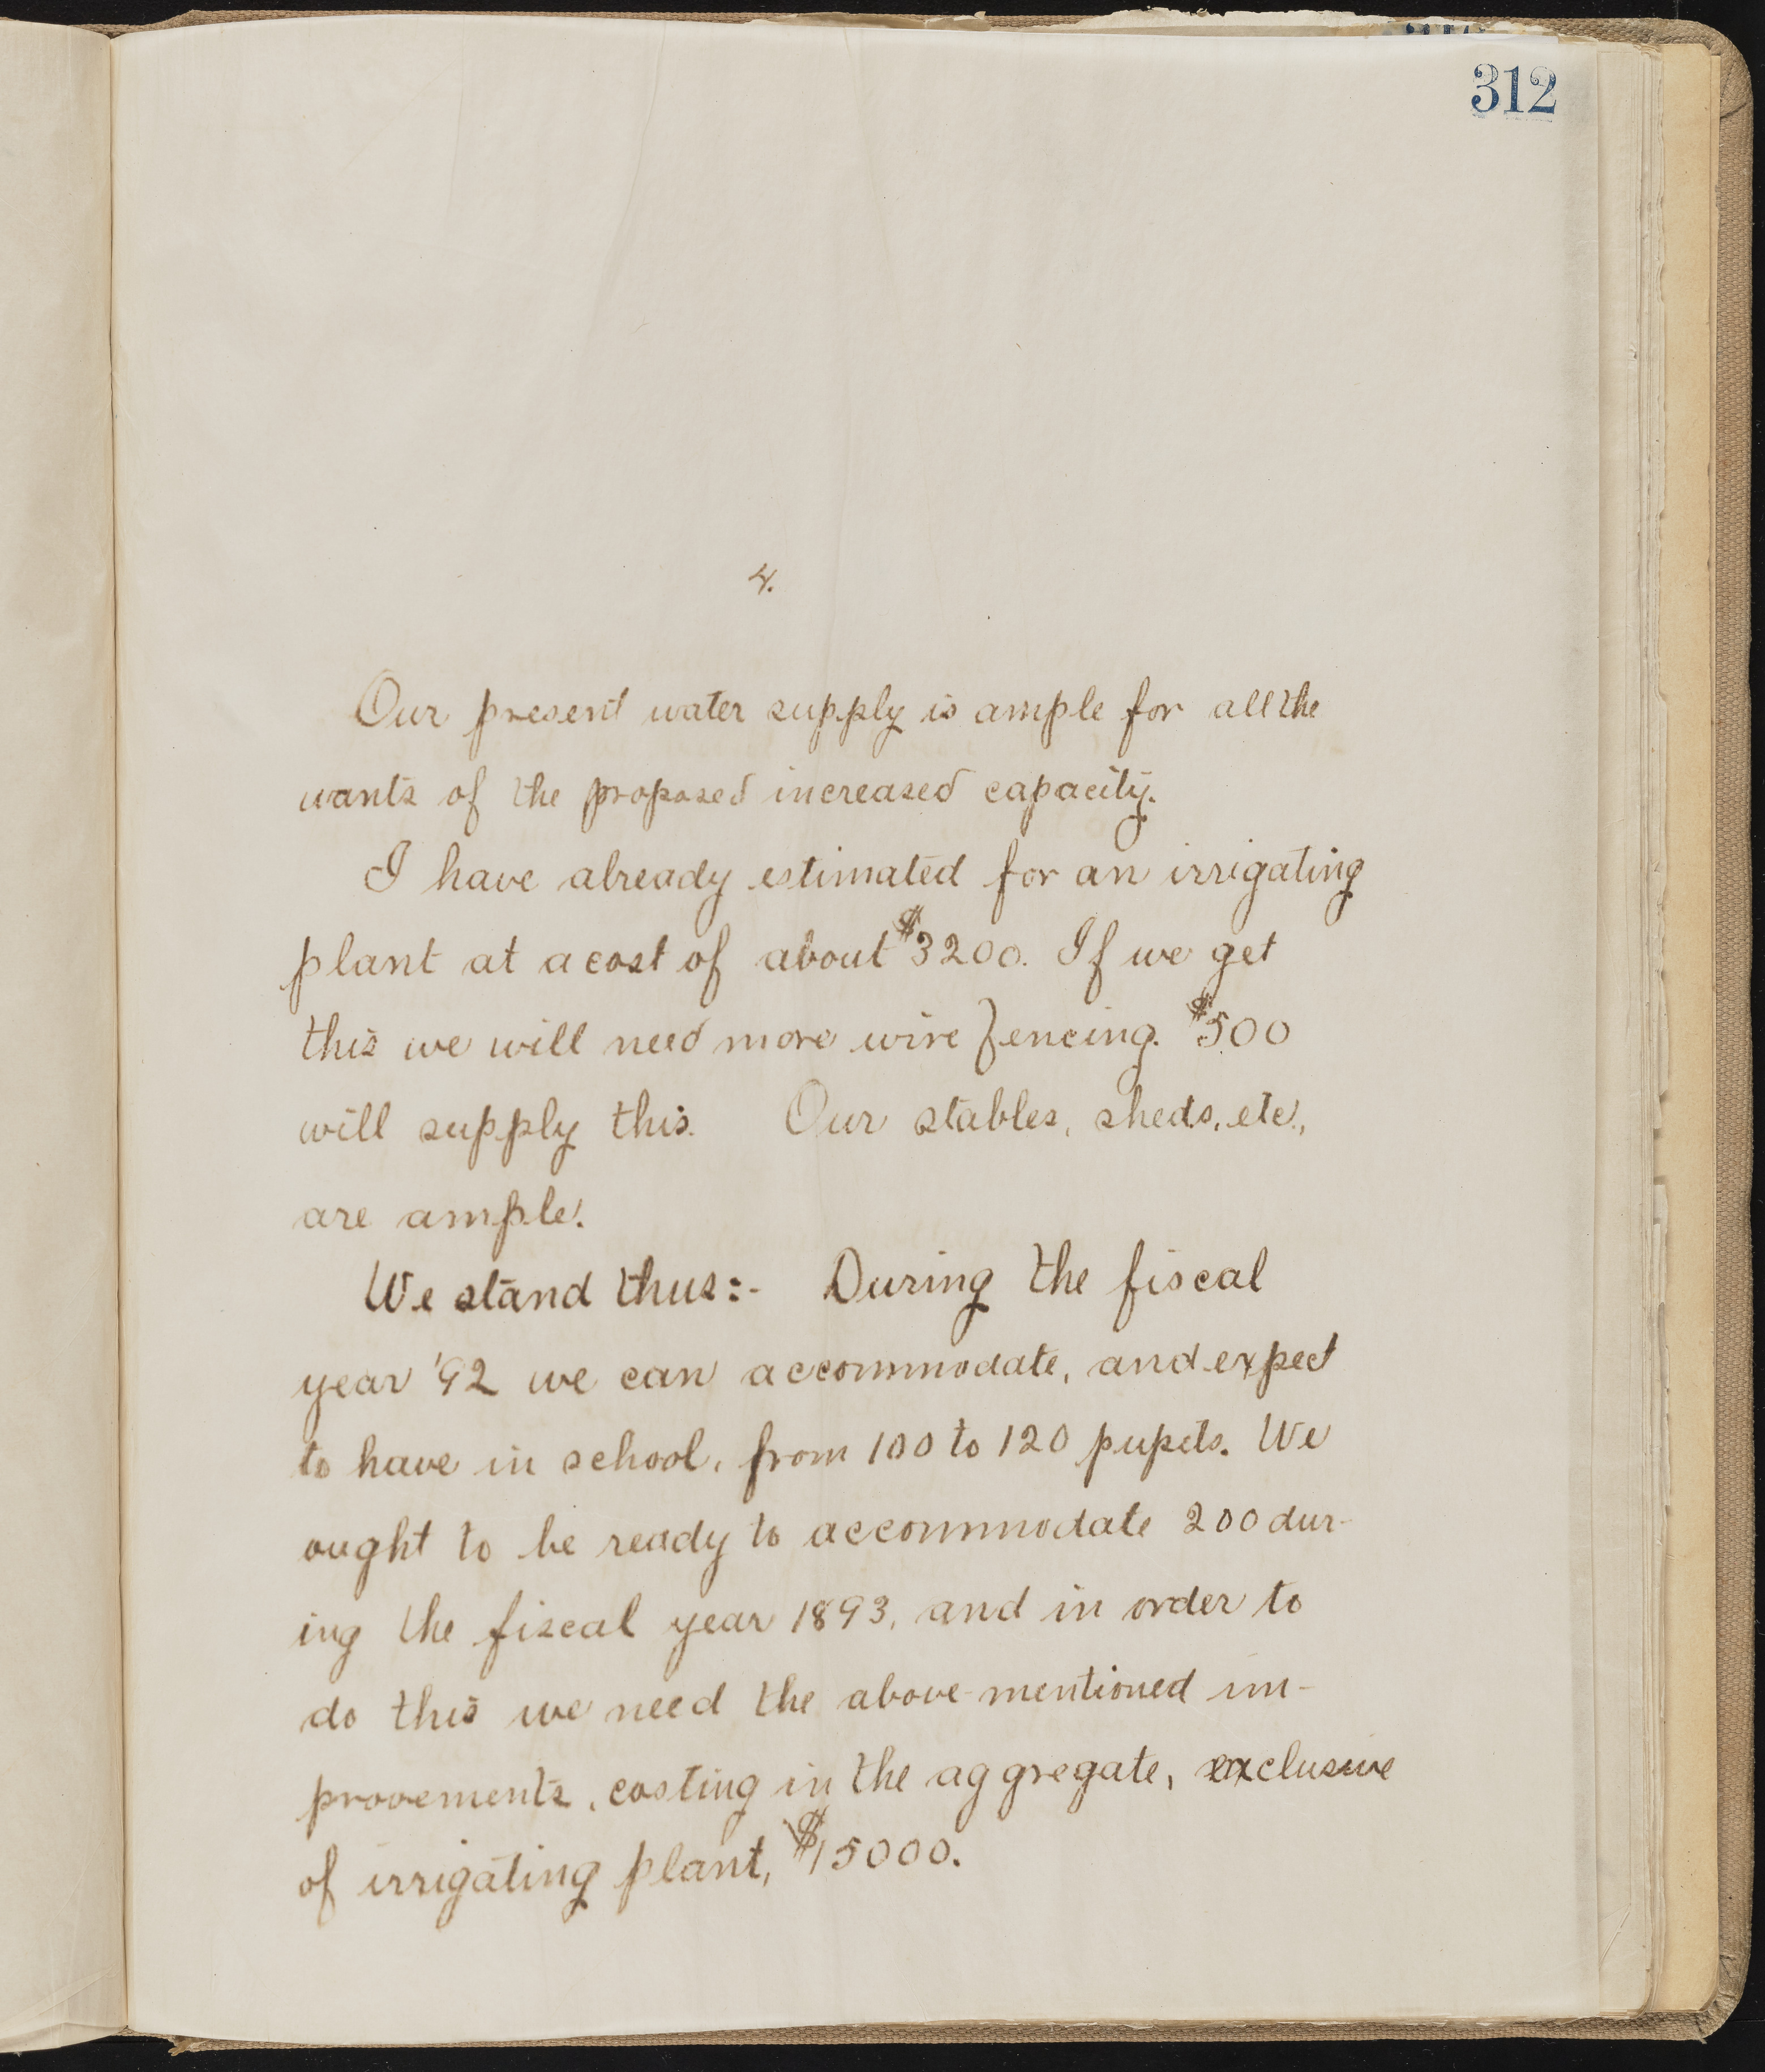 312
4.
Our present water supply is ample for all the
wants of the proposed increased capacity.
I have already estimated for an irrigating
plant at a cost of about $3200. If we get
this we will need more wire fencing. $500
will supply this. Our stables, sheds, etc.,
are ample.
We stand thus:- During the fiscal
year '92 we can accommodate, and expect
to have in school, from 100 to 120 pupils. We
ought to be ready to accommodate 200 dur-
ing the fiscal year 1893, and in order to
do this we need the above-mentioned im-
provements, costing in the aggregate, exclusive
of irrigating plant, $15000.